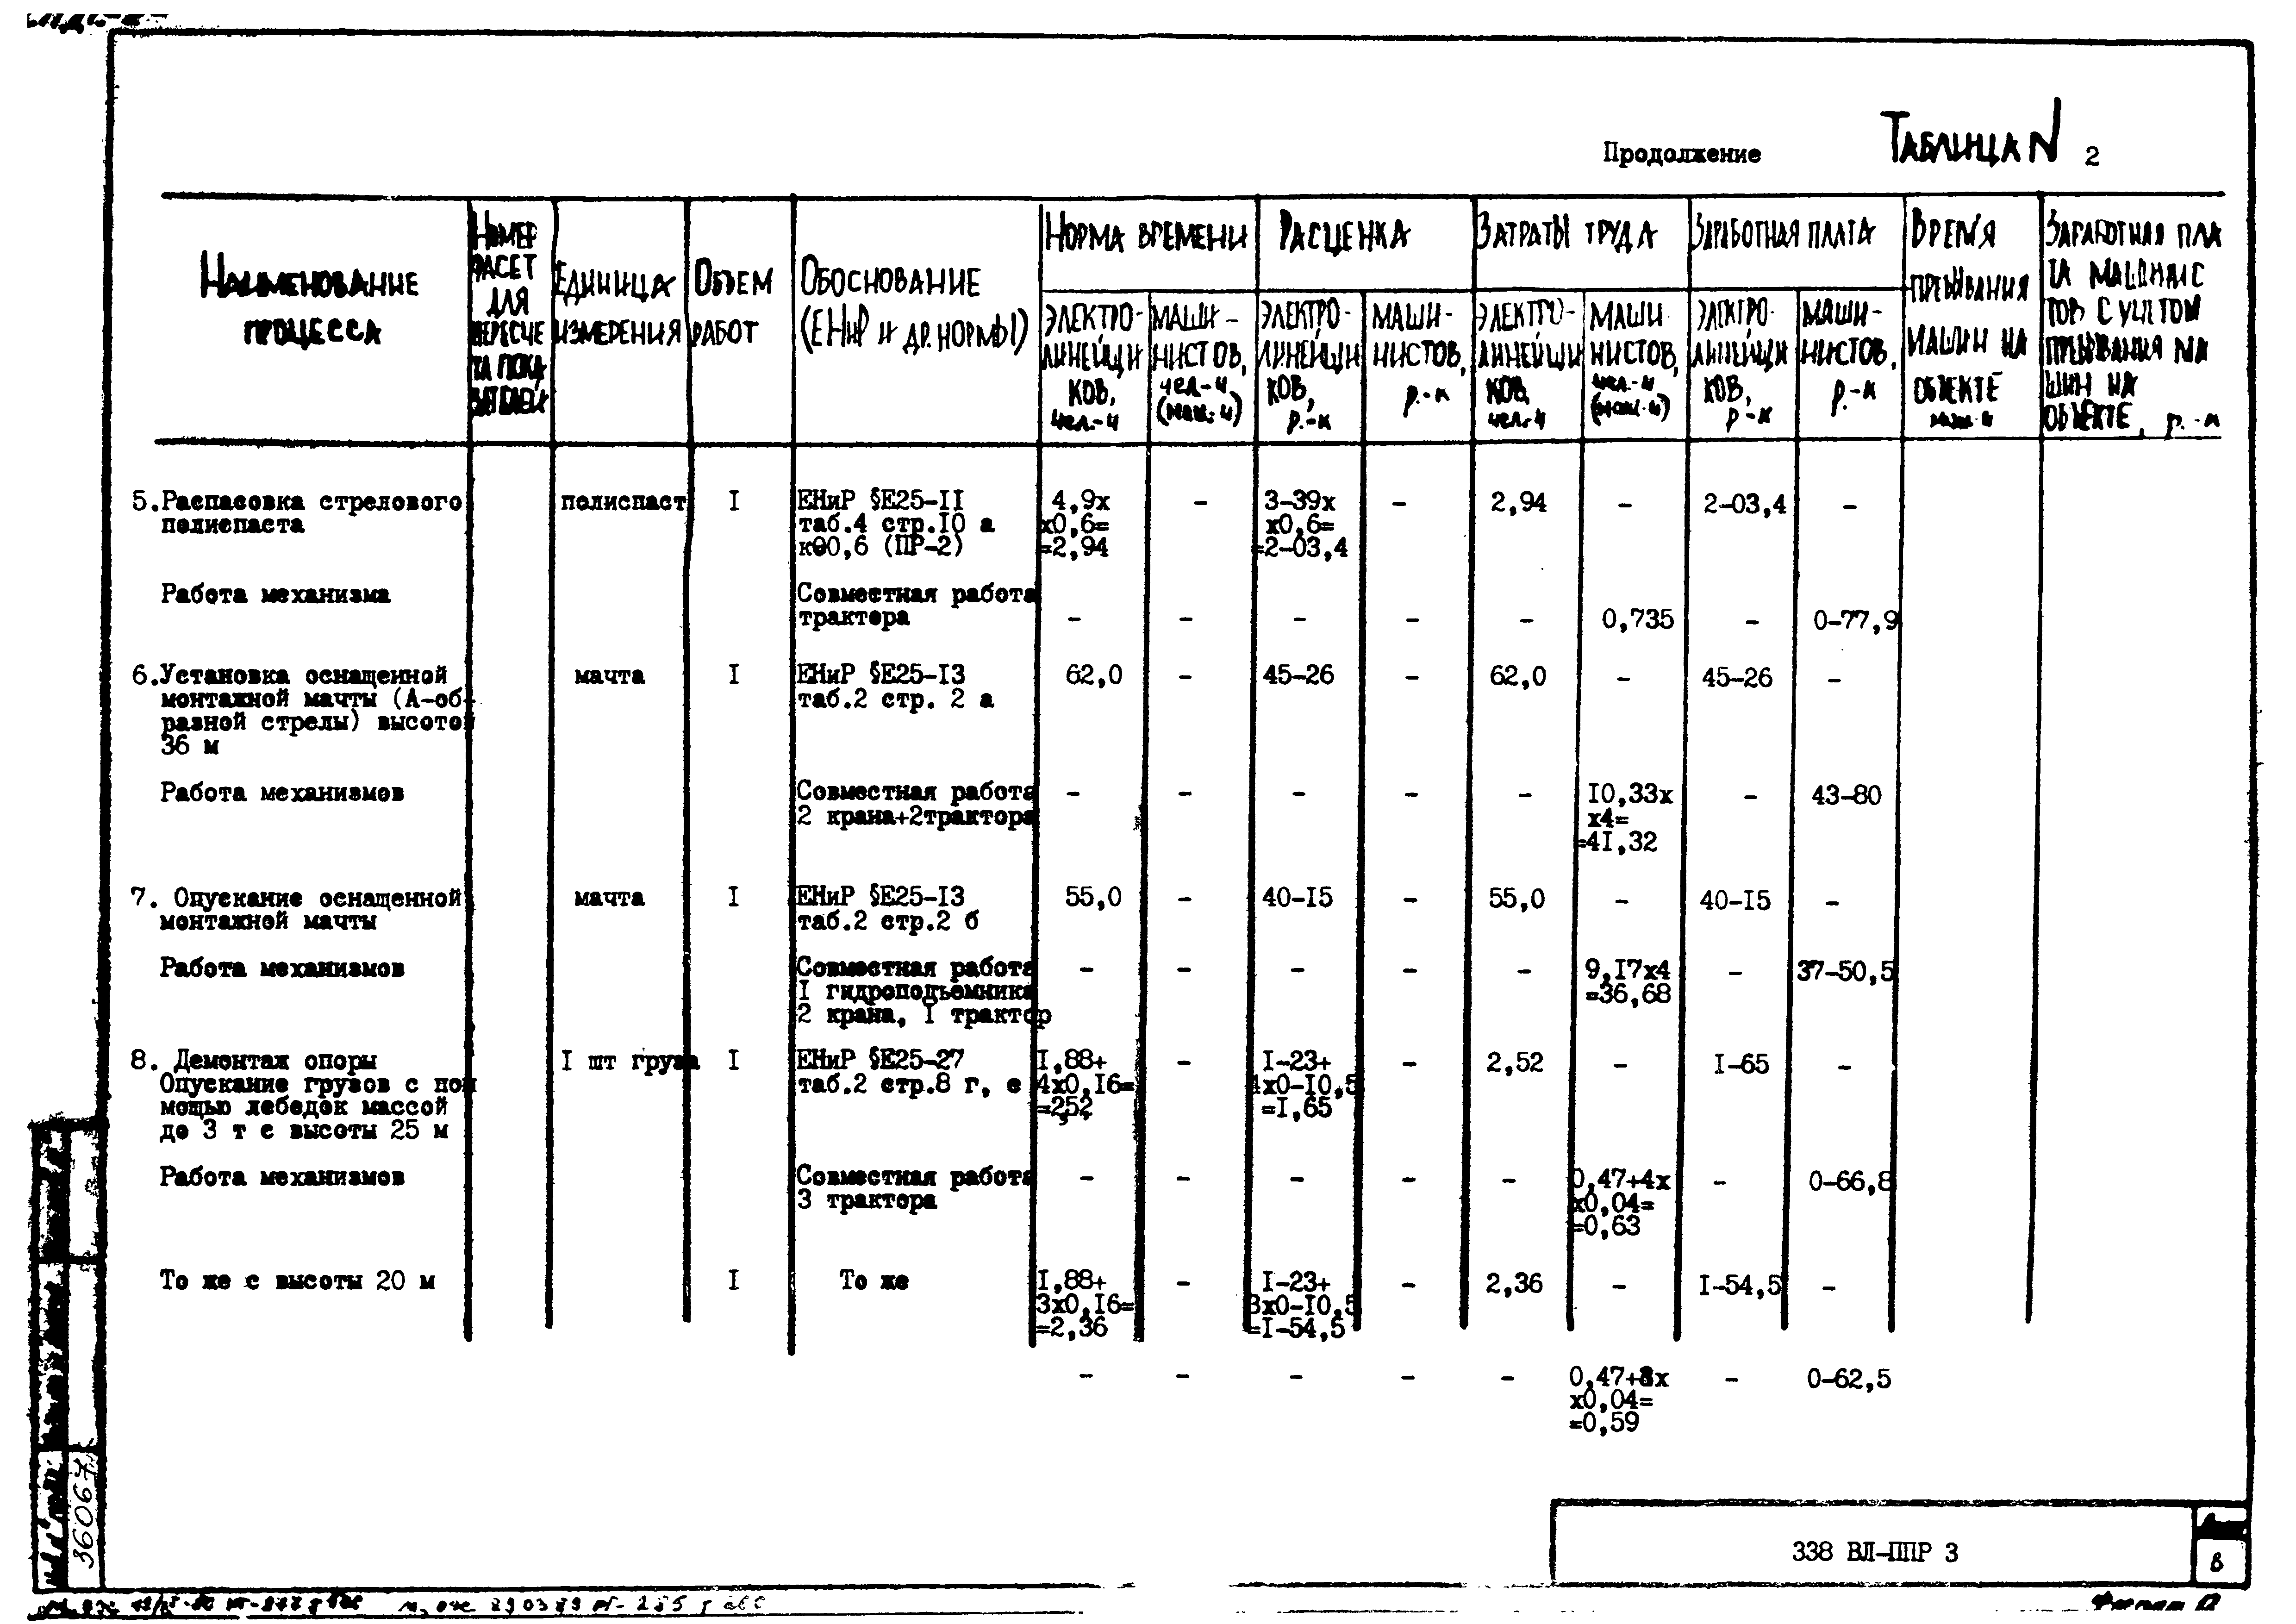 Продолжение ТАБЛИЦА N 2
НАИМЕНОВАНИЕ ПРОЦЕССА
НОМЕР ФАСЕТ ДЛЯ ПЕРЕСЧЕ ТА ПОКА
ЕДИНИЦА ИЗМЕРЕНИЯ
ОБЪЕМ РАБОТ
ОБОСНОВАНИЕ (ЕНиР И ДР. НОРМЫ)
НОРМА ВРЕМЕНИ
ЭЛЕКТРО-ЛИНЕЙЩИ КОВ, чел.-ч
МАШИ-НИСТОВ, чел-ч (маш.-ч)
РАСЦЕНКА
ЭЛЕКТРО-ЛИНЕЙЩИ КОВ, р.-к
МАШИ-НИСТОВ, р.-к
ЗАТРАТЫ ТРУДА
ЭЛЕКТРО-ЛИНЕЙЩИ КОВ чел-ч
МАШИ НИСТОВ, чел.-ч (маш.-ч)
ЗАРАБОТНАЯ ПЛАТА
ЭЛЕКТРО-ЛИНЕЙЩИ КОВ, р-к
МАШИ-НИСТОВ, р.-к
ВРЕМЯ ПРЕБЫВАНИЯ МАШИН НА ОБЪЕКТЕ маш.-ч
ЗАРАБОТНАЯ ПЛА ТА МАШИНИС ТОВ С УЧЕТОМ ПРЕБЫВАНИЯ МА ШИН НА ОБЪЕКТЕ, р.-к
5.Распасовка стрелового полиспаст I ЕНиР §Е25-II 4,9х - 3-39х - 2,94 - 2-03,4 -
полиспаста таб.4 стр.I0 а х0,6= х0,6=
к00,6 (ПР-2) =2,94 =2-03,4
Работа механизма Совместная работа
трактора - - - - - 0,735 - 0-77,9
6.Установка оснащенной мачта I ЕНиР §Е25-I3 62,0 - 45-26 - 62,0 - 45-26 -
монтажной мачты (А-об- таб.2 стр. 2 а
разной стрелы) высотой
36 м
Работа механизмов Совместная работа - - - - - I0,33х - 43-80
2 крана+2трактора х4=
=4I,32
7. Опускание оснащенной мачта I ЕНиР §Е25-I3 55,0 - 40-I5 - 55,0 - 40-I5 -
монтажной мачты таб.2 стр.2 б
Работа механизмов Совместная работа - - - - - 9,I7х4 - 37-50,5
I гидроподъемника =36,68
2 крана, I трактор
8. Демонтаж опоры I шт груза I ЕНиР §Е25-27 I,88+ - I-23+ - 2,52 - I-65 -
Опускание грузов с пом таб.2 стр.8 г, е 4х0,I6= 4х0-I0,5
мощью лебедок массой =2,52 =I,65
до 3 т с высоты 25 м
Работа механизмов Совместная работа - - - - - 0,47+4х - 0-66,8
3 трактора х0,04=
=0,63
То же с высоты 20 м I То же I,88+ - I-23+ - 2,36 - I-54,5 -
3х0,I6= 3х0-I0,5
=2,36 =I-54,5
- - - - - 0,47+3х - 0-62,5
х0,04=
=0,59
36067
338 ВЛ-ППР 3